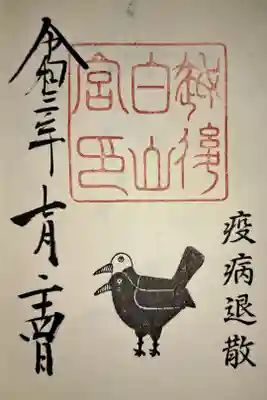 疫病退散
越後
白山
宮印
令和年七月日